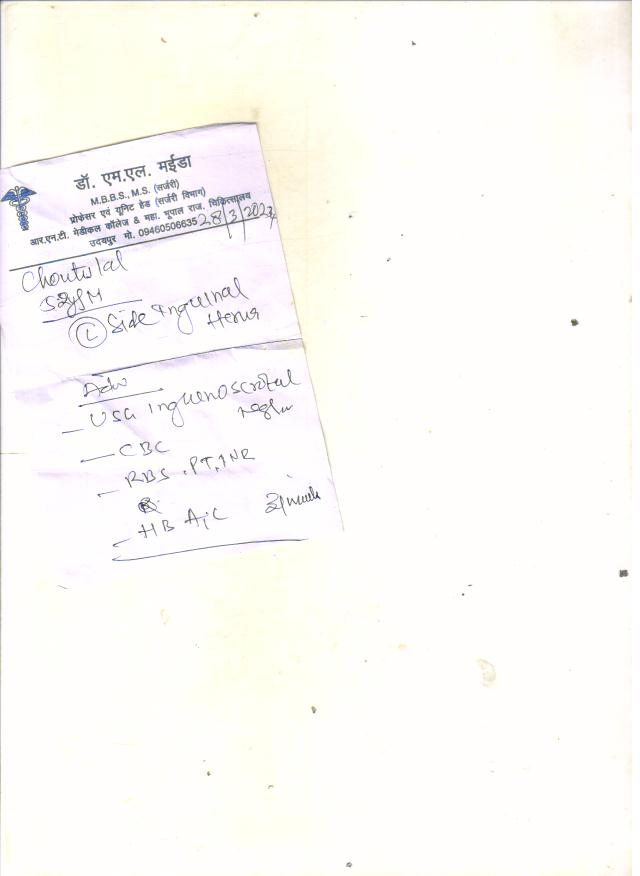 डॉ. एम.एल. मईडा
M.B.B.S., M.S. (सर्जरी)
प्रोफेसर एवं यूनिट हेड (सर्जरी विभाग)
आर.एन.टी. मेडीकल कॉलेज & महा. भूपाल राज. चिकित्सालय
उदयपुर मो. 09460506635
28/3/2023
52y/M
(L) Side Inguinal
Adv
USG Inguenoscrotal
CBC
RBS, PT, INR
HB A1C